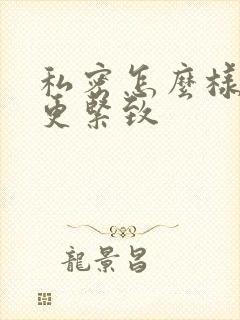 私密怎麼樣
更緊致
龍景昌